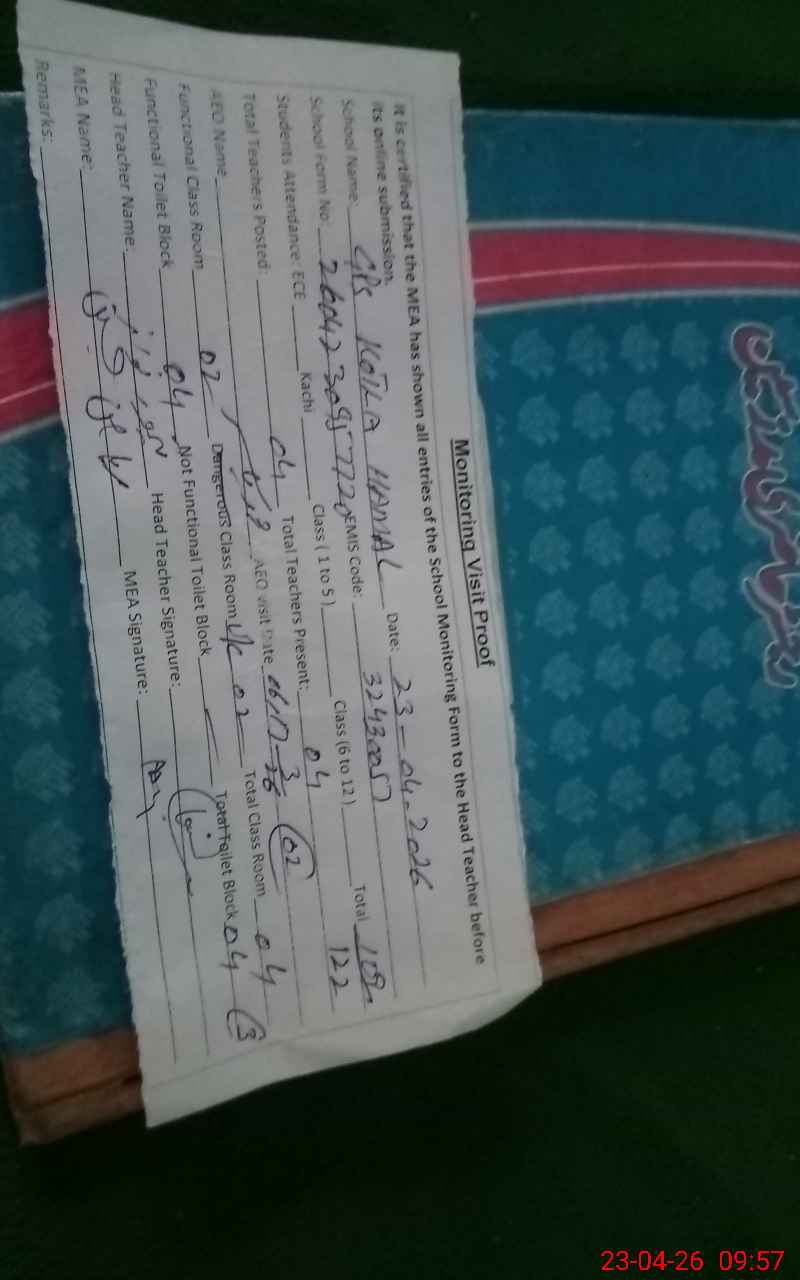 Monitoring Visit Proof
It is certified that the MEA has shown all entries of the School Monitoring Form to the Head Teacher before
its online submission.
School Name: GPS KOTLA HAMAL Date: 23-04-2026
School Form No: EMIS Code: 32430057
Students Attendance: ECE Kachi Class ( 1 to 5 ) Class (6 to 12 ) Total 109/122
Total Teachers Posted: 04 Total Teachers Present: 04
AEO Name AEO visit Date 02
Functional Class Room 02 Dangerous Class Room 02 Total Class Room 04
Functional Toilet Block 04 Not Functional Toilet Block Total Toilet Block 04 3
Head Teacher Name: Head Teacher Signature:
MEA Name: MEA Signature:
Remarks:
23-04-26 09:57